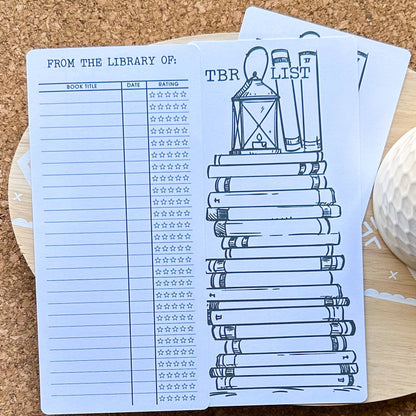 FROM THE LIBRARY OF:
BOOK TITLE DATE RATING
TBR LIST